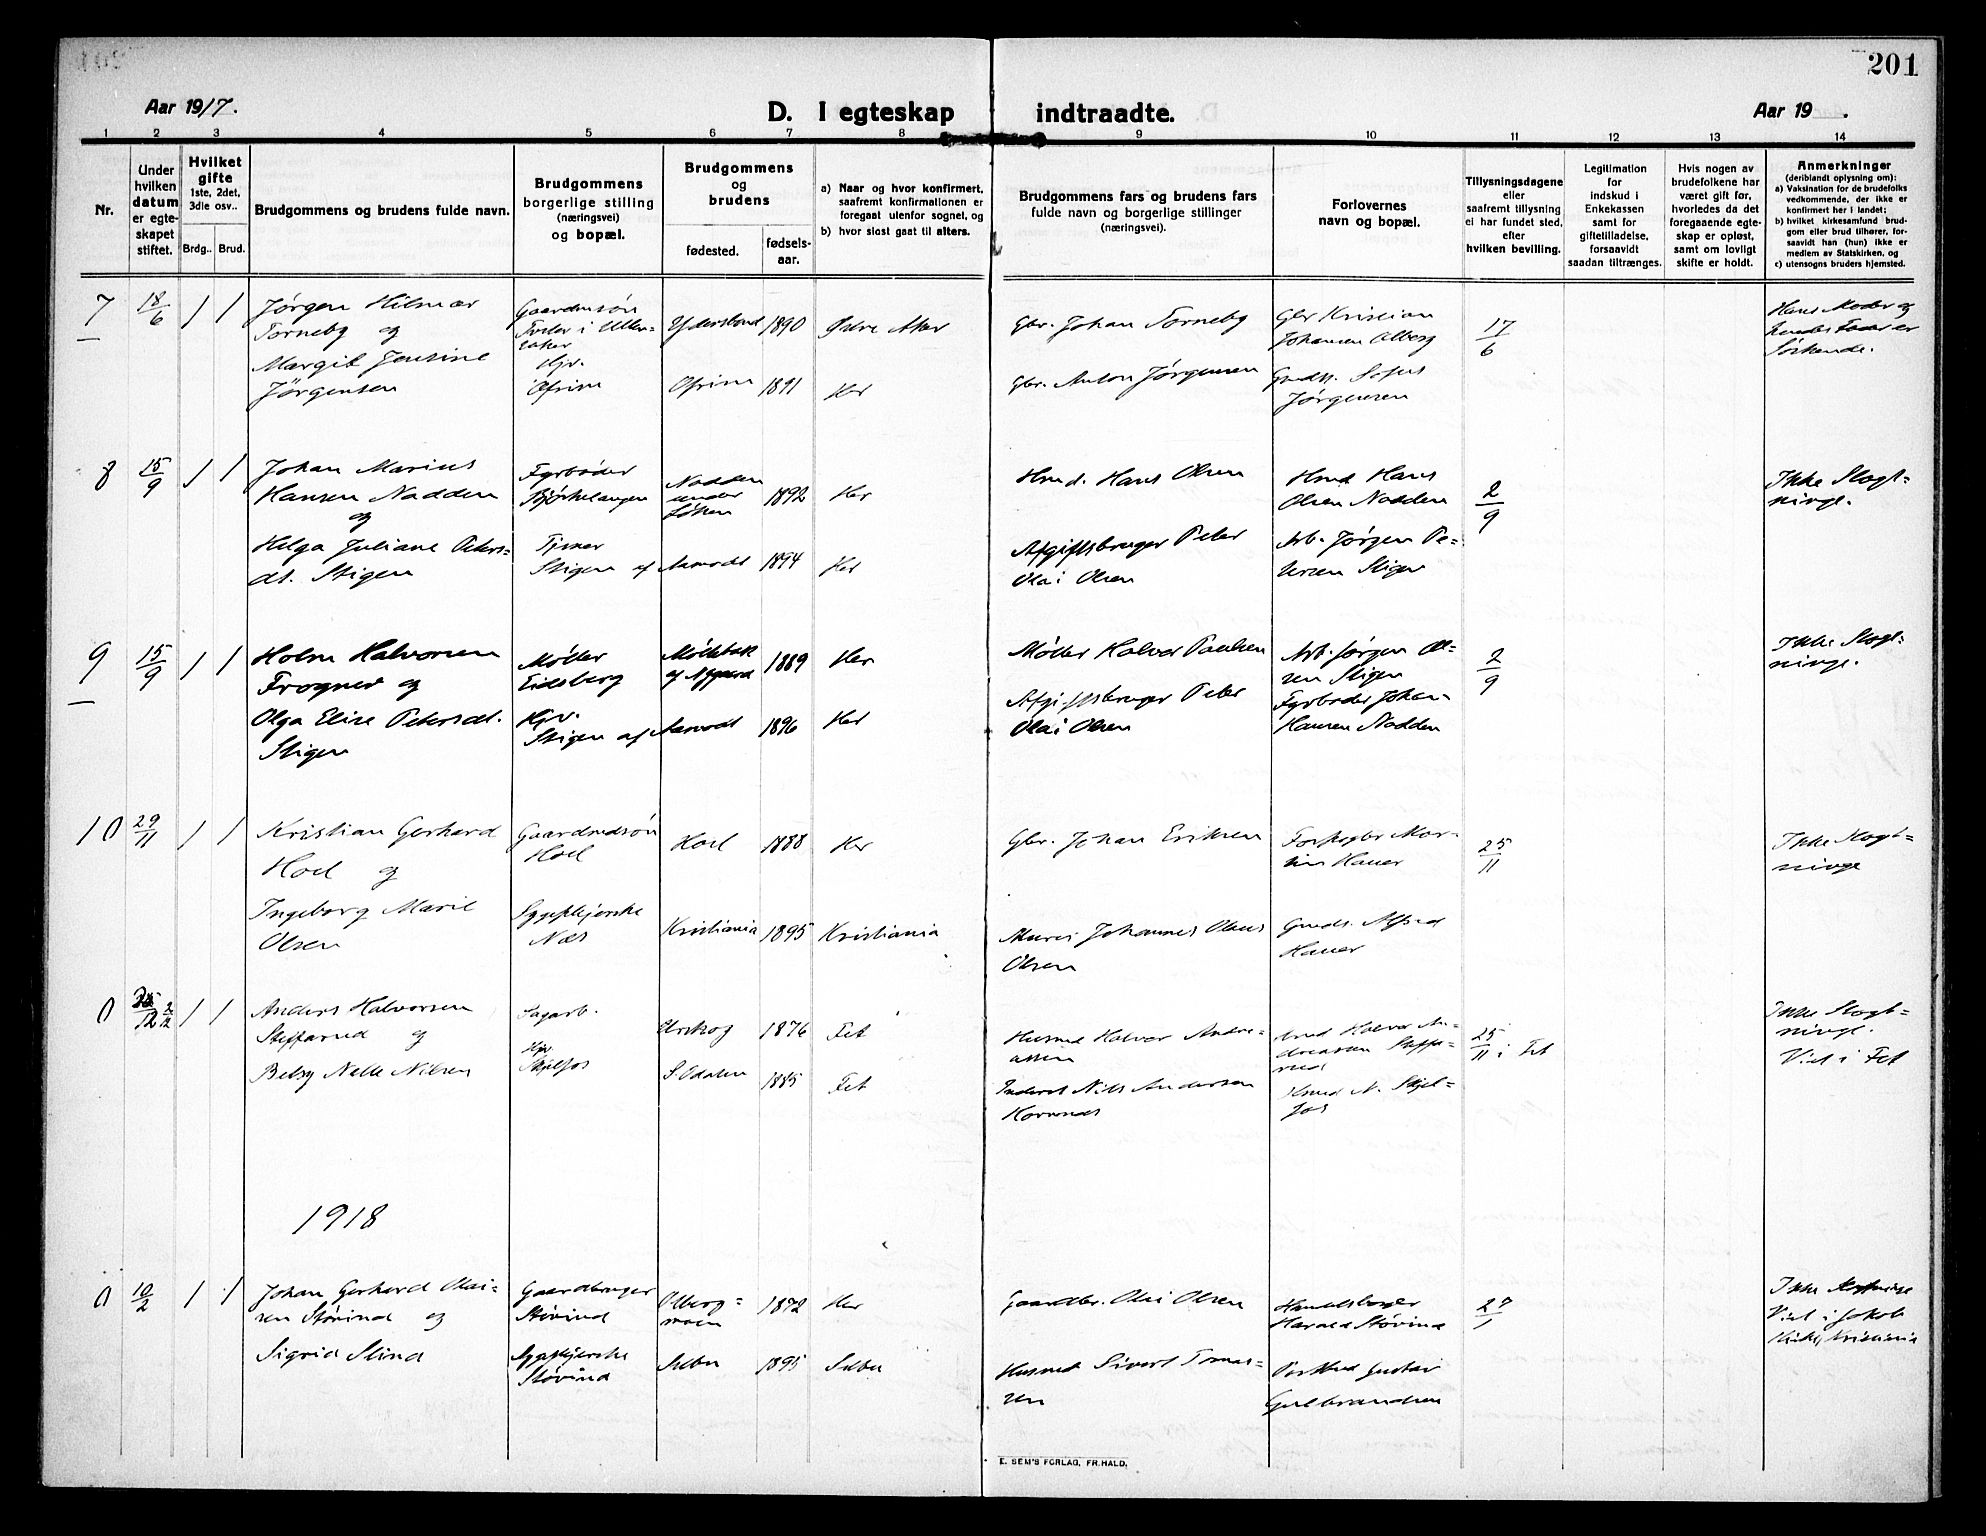 201
Aar 1917.
D. I egteskap indtraadte.
Aar 19 .
1 2 3 4 5 6 7 8 9 10 11 12 13 14
Nr.
Under
hvilken
datum
er egte-
skapet
stiftet.
Hvilket
gifte
1ste, 2det,
3dle osv..
Brdg.. Brud.
Brudgommens og brudens fulde navn.
Brudgommens
borgerlige stilling
(næringsvei)
og bopæl.
Brudgommens
og
brudens
fødested.
fødsels-
aar.
a) Naar og hvor konfirmert,
saafremt konfirmationen er
foregaat utenfor sognet, og
b) hvor sidst gaat til alters.
Brudgommens fars og brudens fars
fulde navn og borgerlige stillinger
(næringsvei).
Forlovernes
navn og bopæl.
Tillysningsdagene
eller
saafremt tillysning
ei har fundet sted,
efter
hvilken bevilling.
Legitimation
for
indskud i
Enkekassen
samt for
giftetilladelse,
forsaavidt
saadan tiltrænges.
Hvis nogen av
brudefolkene har
været gift før,
hvorledes da det
foregaaende egte-
skap er opløst,
samt om lovligt
skifte er holdt.
Anmerkninger
(deriblandt oplysning om):
a) Vaksination for de brudefolks
vedkommende, der ikke er
konfirmert her i landet;
b) hvilket kirkesamfund brud-
gom eller brud tilhører, for-
saavidt han (hun) ikke er
medlem av Statskirken, og
c) utensogns bruders hjemsted.
7 18/6 1 1
Jørgen Hilmar
Torneby og
Margit Jensine
Jörgensen
Gaardmsøn
Hjv.
1890 Østre Aker
1891 Her
Gbr. Johan Torneby
Gbr. Anton Jørgensen
Gbr Kristian
Johansen Olberg
Gmds. Sofus
Jørgensen
17/6
Hans Moder og
hendes Fader er
Søskende.
8 15/9 1 1
Johan Marius
Hansen Nadden
og
Helga Juliane Peters=
dt. Stigen
Fyrbøder
Bjørkelangen
Tjener
Stigen af Aamodt
Nadden
under
Løken
1892 Her
1894 Her
Hmd. Hans Olsen
Afgiftsbruger Peter
Olai Olsen
Hmd Hans
Olsen Nadden
Arb. Jørgen Pe-
tersen Stigen
2/9
Ikke Slegt=
ninge.
9 15/9 1 1
Holm Halvorsen
Frogner og
Olga Elise Petersdt.
Stigen
Møller
Eidsberg
Hjv.
Stigen af Aamodt
1889 Her
1896 Her
Møller Halvor Paulsen
Afgiftsbruger Peter
Olai Olsen
Arb. Jørgen Ol-
sen Stigen
Fyrbøder Johan
Hansen Nadden
2/9
Ikke Slegt=
ninge.
10 29/11 1 1
Kristian Gerhard
Hoel og
Ingeborg Marie
Olsen
Gaardmdsøn
Hoel
Sypikjerske
Næs
Hoel 1888 Her
Kristiania 1895 Kristiania
Gbr. Johan Eriksen
Murer Johannes Olaus
Olsen
Forpagter Mar-
tin Hauer
Gmds. Alfred
Hauer
25/11
Ikke Slegt-
ninge
0 1 1
Anders Halvorsen
Steffarud og
Betsy Nelle Nilsen
Sagarb.
Hjv.
Skjelfos
Urskog 1876 Fet
S. Odalen 1885 Fet
Husmd Halvor Andre-
assen
Inderst Nils Andersen
Hmd Halvor An-
dreassen Steffa-
rud
Hmd N. Skjel-
fos
25/11 i Fet
Ikke Slegt-
ninge.
Viet i Fet
1918
0 10/2 1 1
Johan Gerhard Olai-
sen Støvind og
Sigrid Slind
Gaardbruger
Støvind
Sypikjerske
Støvind
Olberg=
moen
1872 Her
Selbu 1895 Selbu
Gaardbr. Olai Olsen
Husmd Sivert Tomas=
sen
Handelsbgr
Harald Støvind
Gustav
Gulbrandsen
27/1
Ikke Slegtninge
Viet i Jakob
Kirke, Kristiania
E. SEM'S FORLAG, FR.HALD.